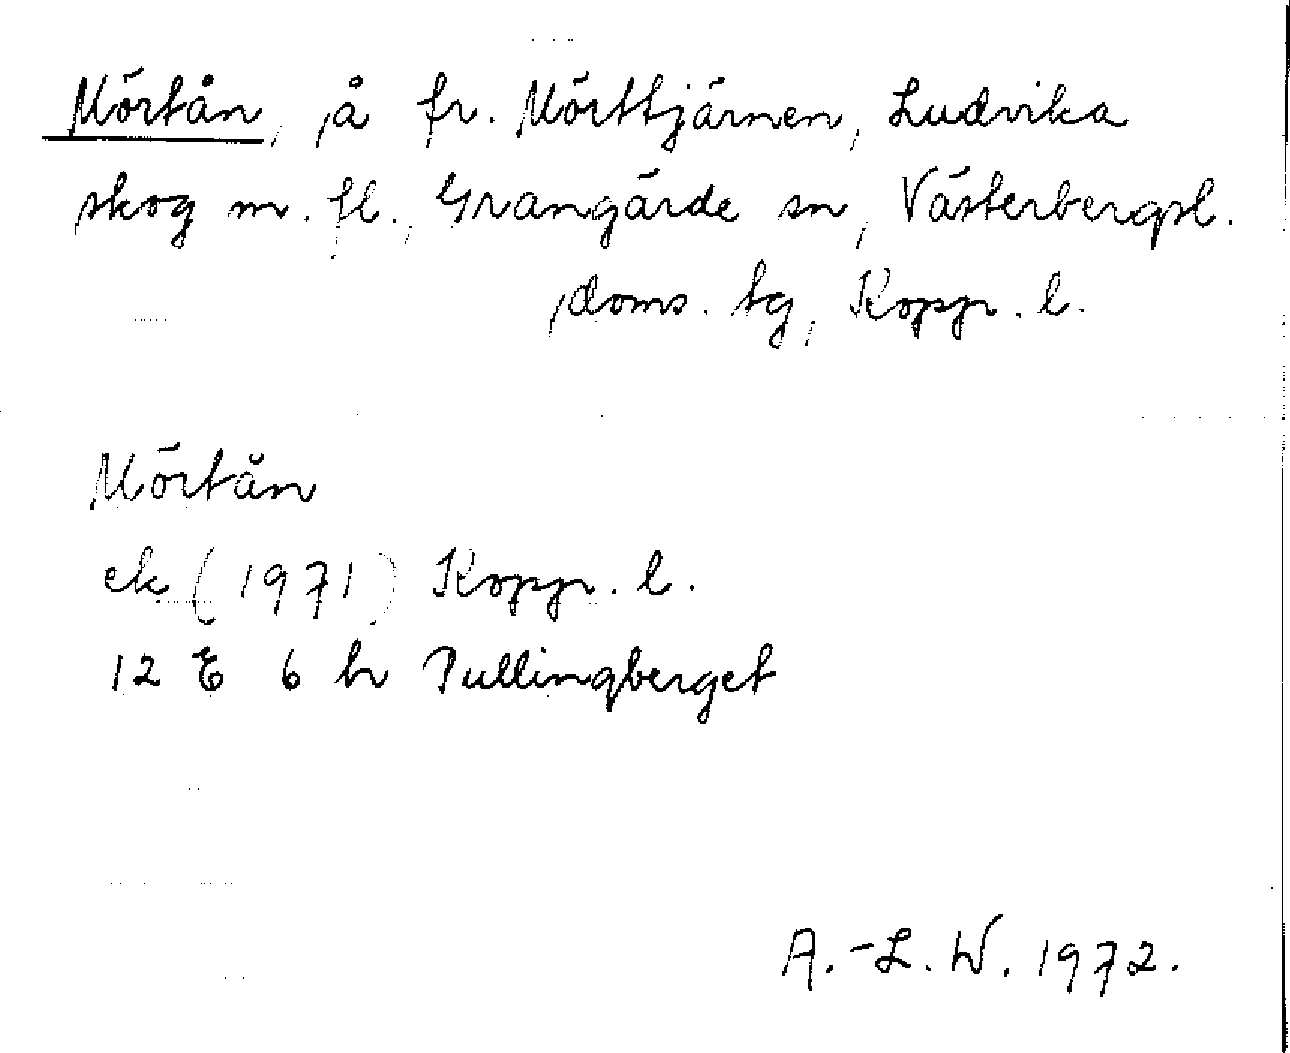 Mörtån, å fr. Mörttjärnen, Ludvika
skog m. fl., Grangärde sn, Västerbergsl.
doms. tg, Kopp. l.
Mörtån
ek (1971) Kopp. l.
12 E 6 h Pullingberget
A.-L. W. 1972.